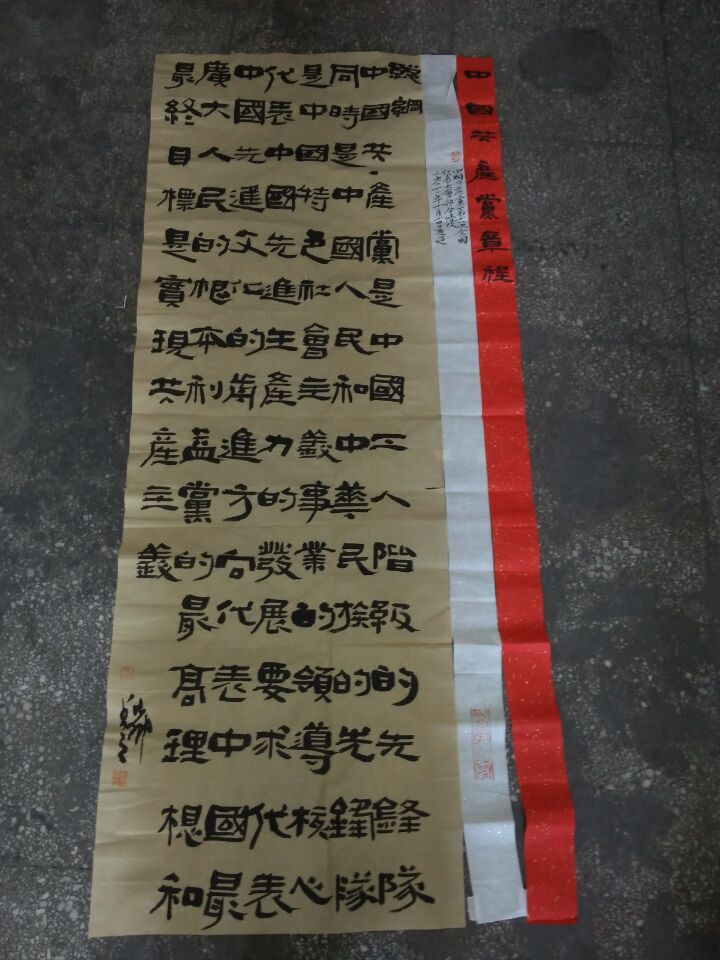 中國共産黨章程
總綱
中國共産黨是中國工人階級的先鋒隊
同時是中國人民和中華民族的先鋒隊
是中國特色社會主義事業的領導核心
代表中國先進生産力的發展要求代表
中國先進文化的前進方向代表中國最
廣大人民的根本利益黨的最高理想和
最終目標是實現共産主義